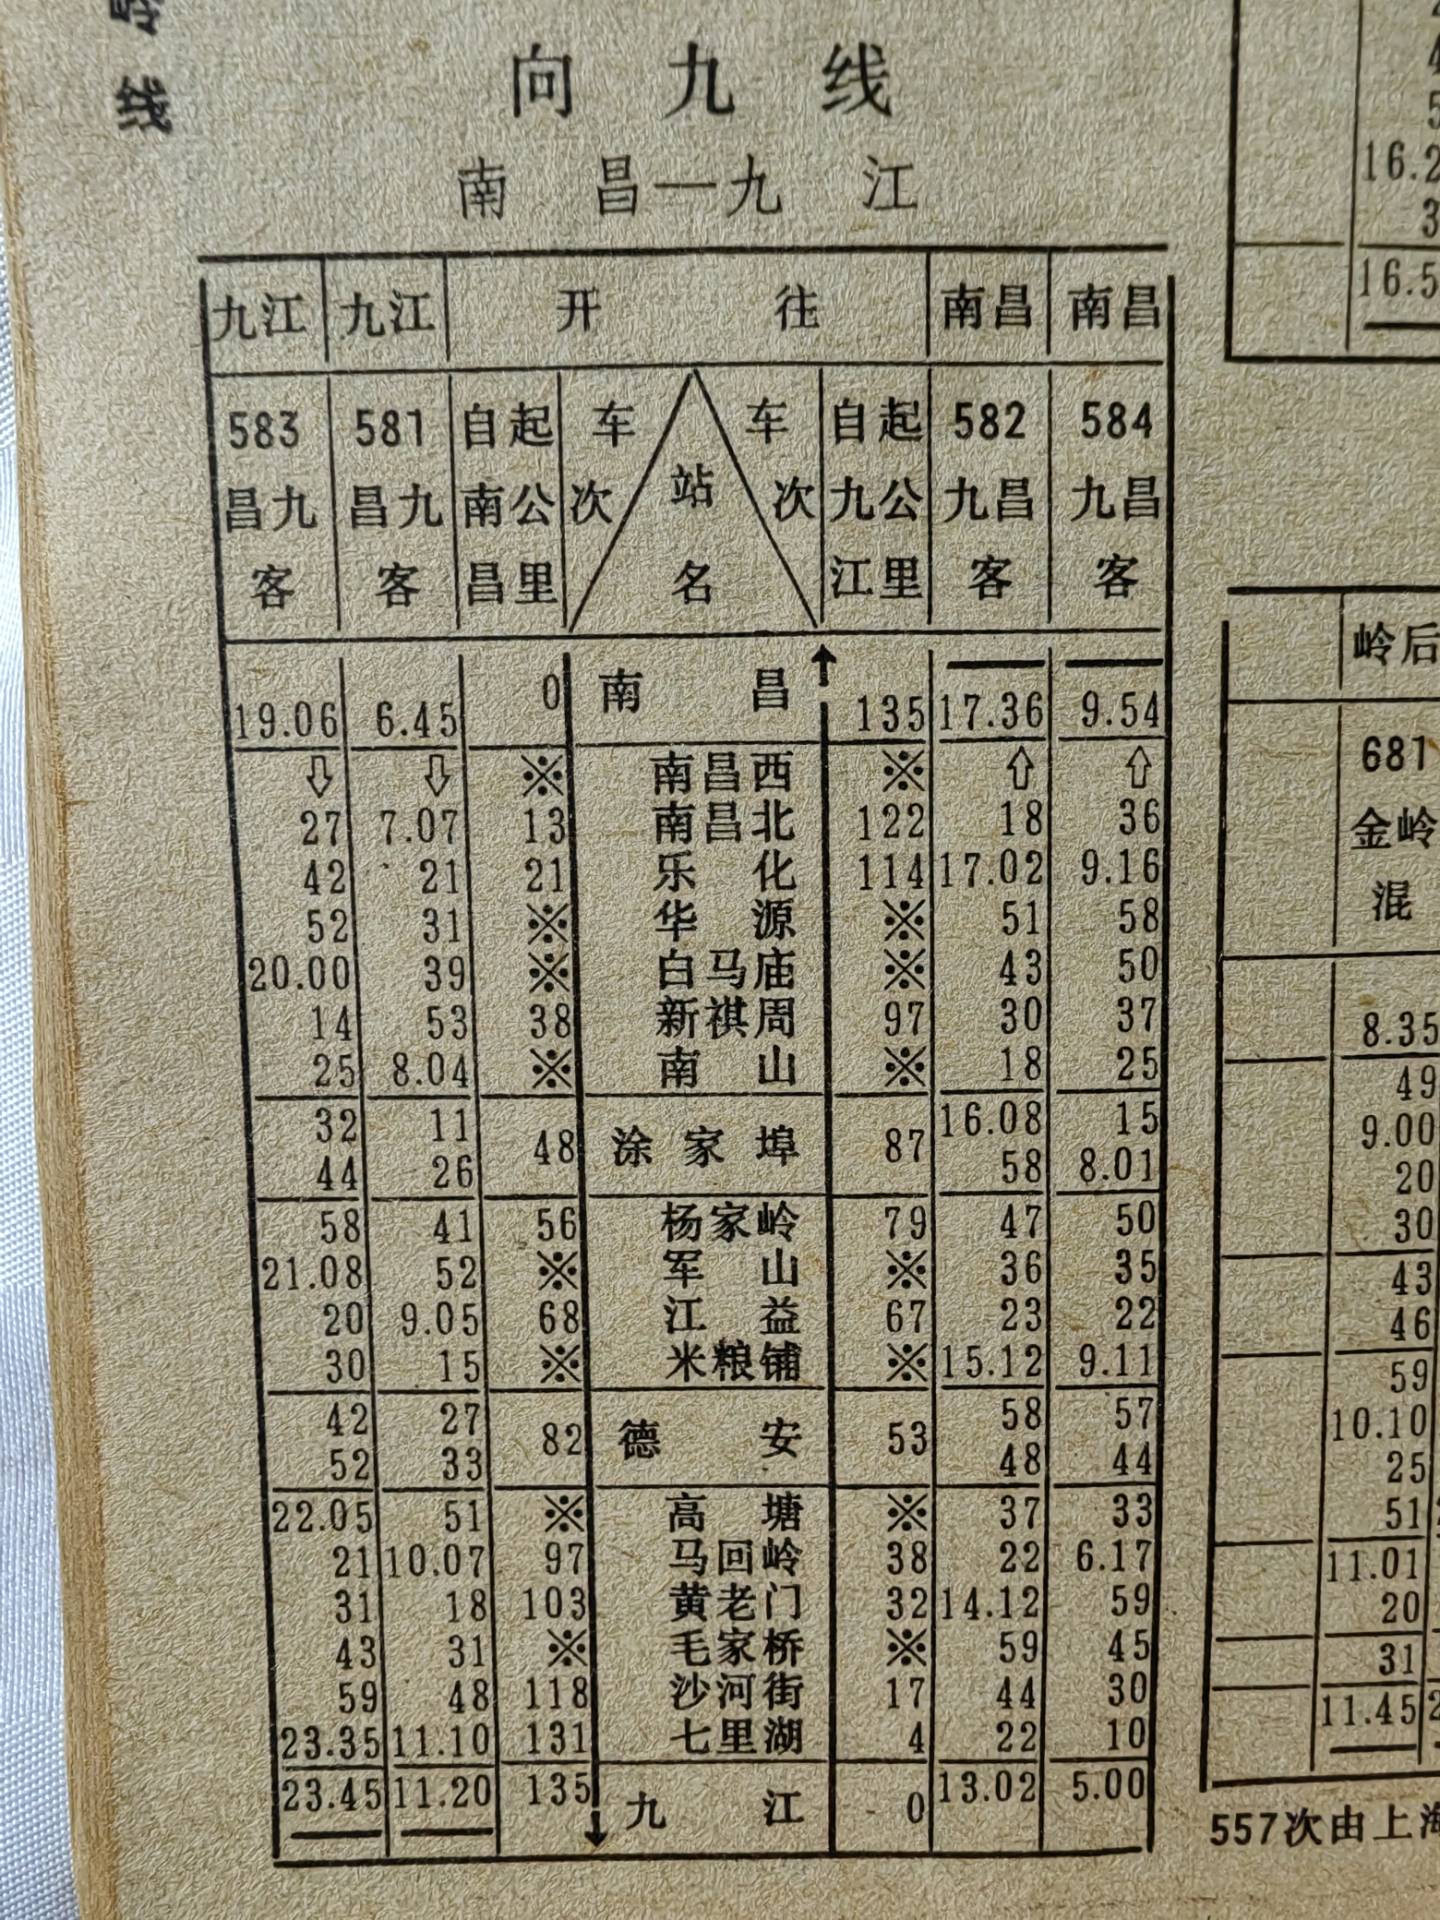 岭
线
向九线
南昌—九江
九江 九江 开往 南昌 南昌
583 581 自起 车 车 自起 582 584
昌九 昌九 南公 次 站 次 九公 九昌 九昌
客 客 昌里 名 江里 客 客
19.06 6.45 0 南昌 135 17.36 9.54
⇩ ⇩ ※ 南昌西 ※ ⇧ ⇧
27 7.07 13 南昌北 122 18 36
42 21 21 乐化 114 17.02 9.16
52 31 ※ 华源 ※ 51 58
20.00 39 ※ 白马庙 ※ 43 50
14 53 38 新祺周 97 30 37
25 8.04 ※ 南山 ※ 18 25
32 11 48 涂家埠 87 16.08 15
44 26 58 8.01
58 41 56 杨家岭 79 47 50
21.08 52 ※ 军山 ※ 36 35
20 9.05 68 江益 67 23 22
30 15 ※ 米粮铺 ※ 15.12 9.11
42 27 82 德安 53 58 57
52 33 48 44
22.05 51 ※ 高塘 ※ 37 33
21 10.07 97 马回岭 38 22 6.17
31 18 103 黄老门 32 14.12 59
43 31 ※ 毛家桥 ※ 59 45
59 48 118 沙河街 17 44 30
23.35 11.10 131 七里湖 4 22 10
23.45 11.20 135 九江 0 13.02 5.00
16.2
3
16.5
岭后
681
金岭
混
8.35
49
9.00
20
30
43
46
59
10.10
25
51
11.01
20
31
11.45
557次由上海